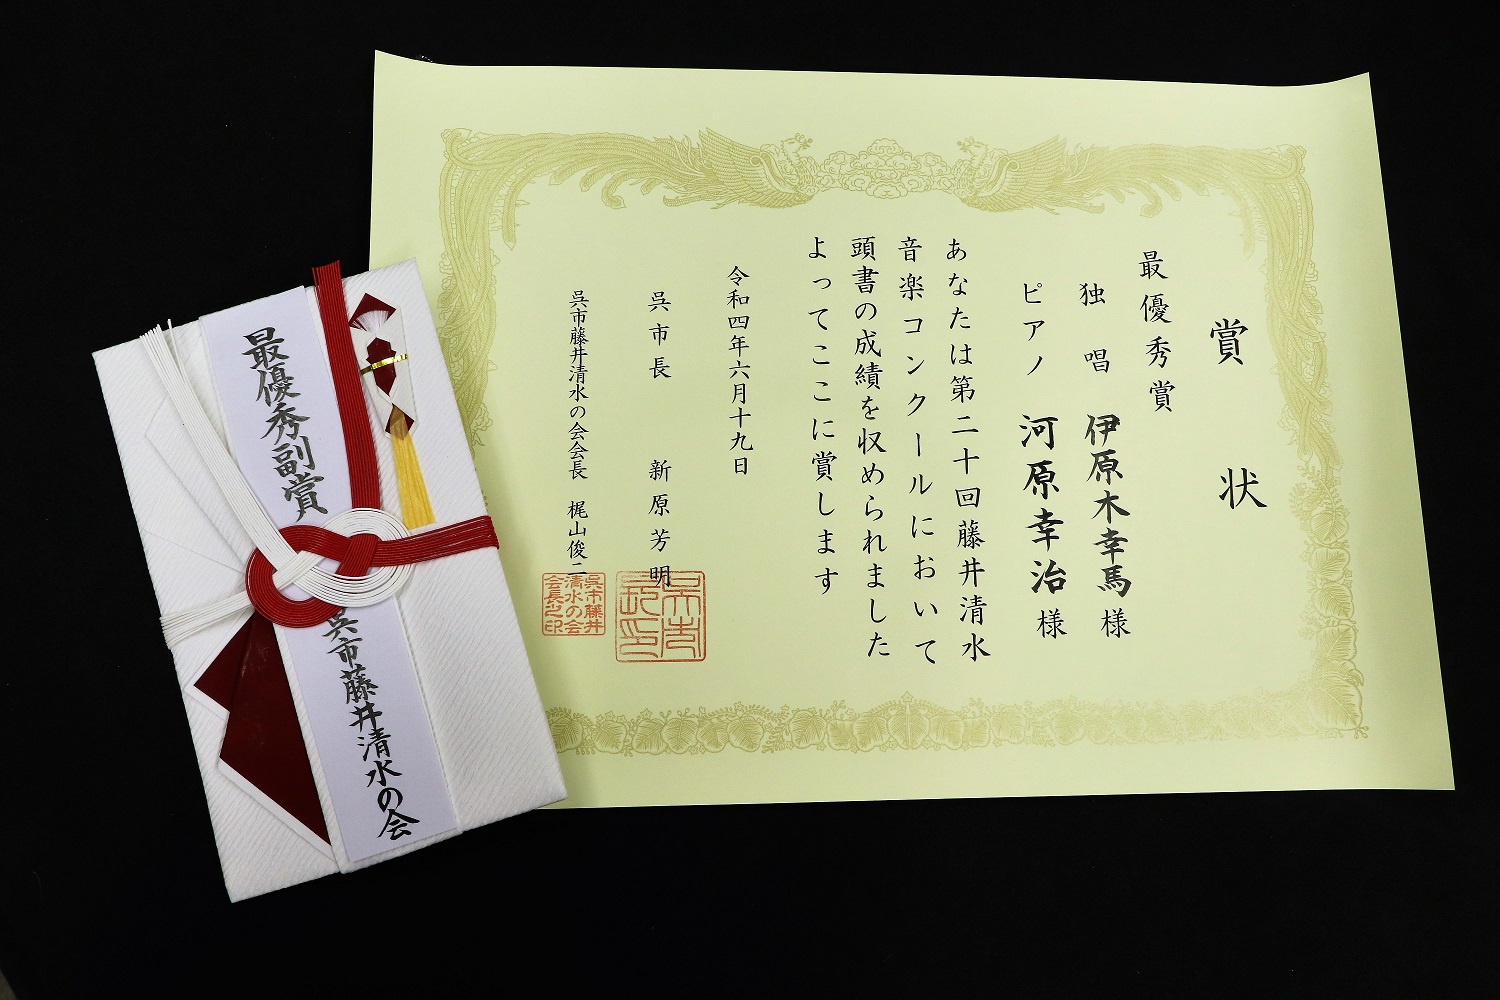 賞状
最優秀賞
独唱 伊原木幸馬様
ピアノ 河原幸治様
あなたは第二十回藤井清水
音楽コンクールにおいて
頭書の成績を収められました
よってここに賞します
令和四年六月十九日
呉市長 新原芳明
呉市藤井清水の会会長 梶山俊二
呉市藤井
清水の会
会長之印
最優秀副賞
呉市藤井清水の会